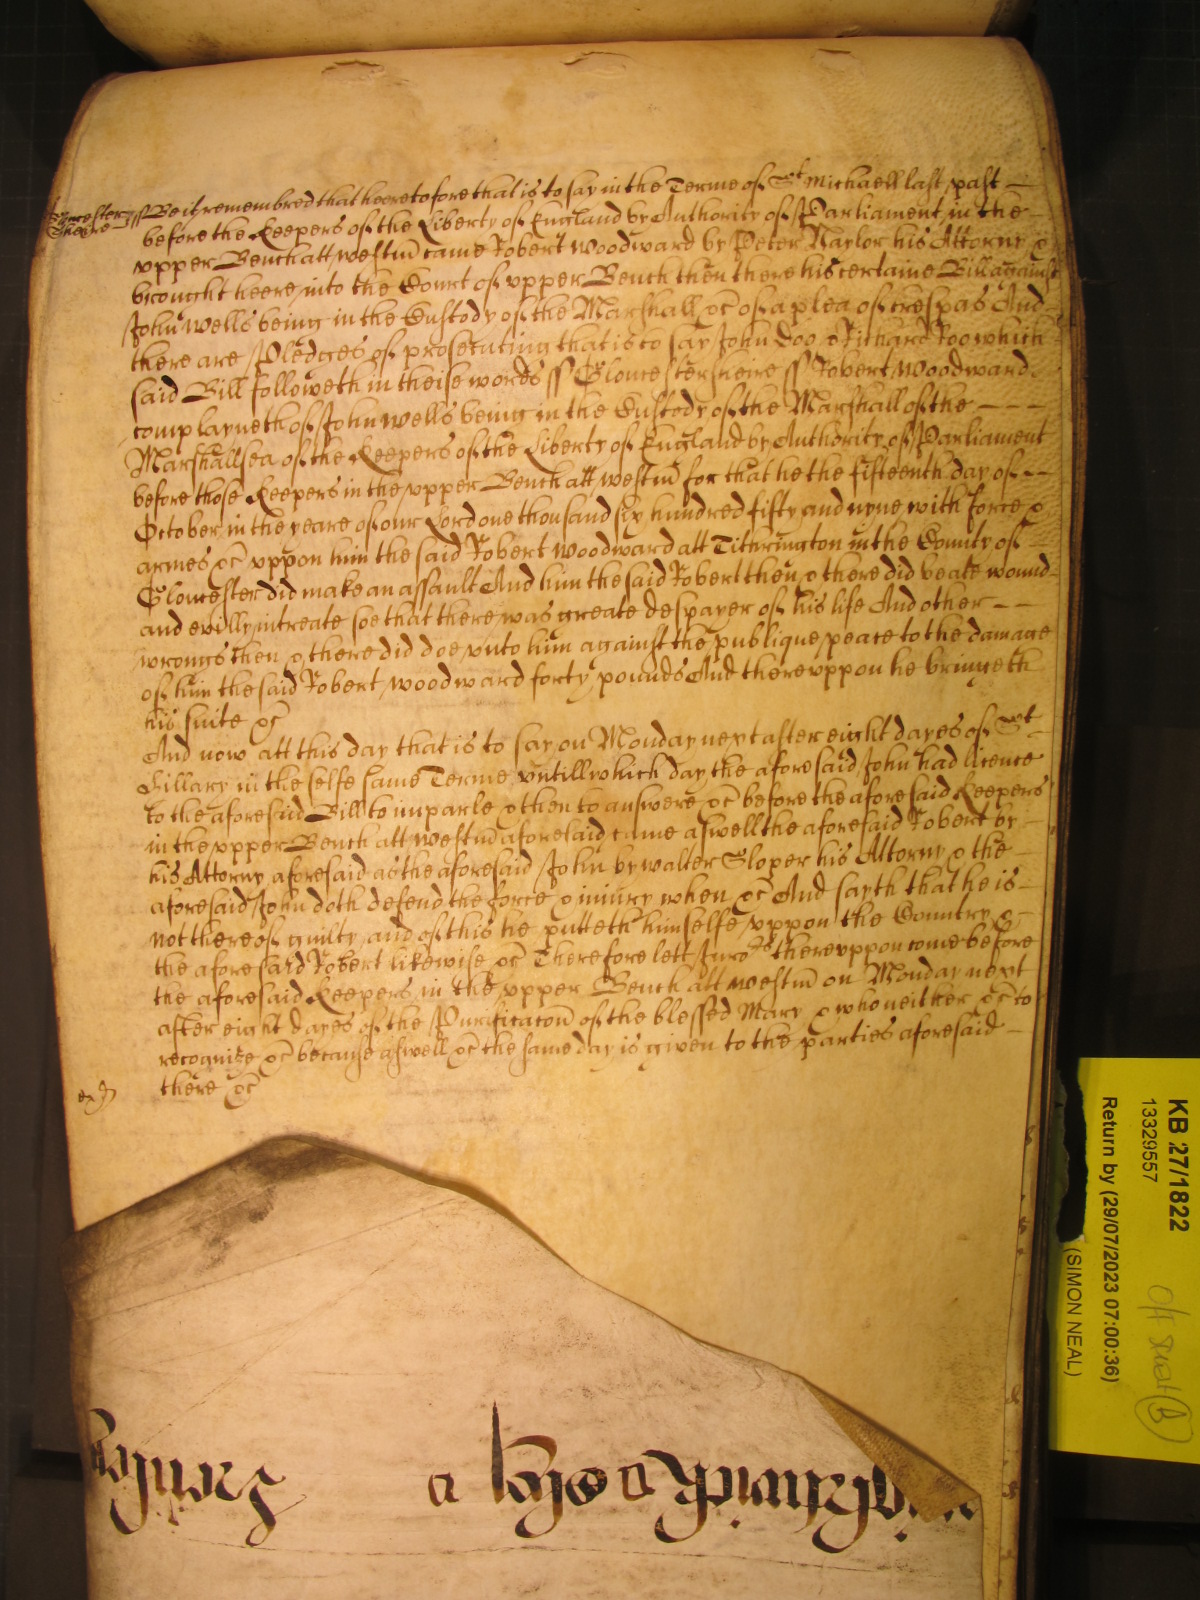 Gloucester
sheire ss Be it remembred that heeretofore that is to say in the Terme of St Michaell last past
before the Keepers of the Liberty of England by Authority of Parliament in the
upper Bench att westm̄ came Robert Woodward by Peter Naylor his Attorny &
brought heere into the Court of upper Bench then there his certaine Bill against
John Wells being in the Custody of the Marshall &c̄ of a plea of trespas And
there are Pledges of prosecuting that is to say John Doo & Richard Roo which
said Bill followeth in theise words ss Gloucestersheire ss Robert Woodward
complayneth of John Wells being in the Custody of the Marshall of the
Marshallsea of the Keepers of the Liberty of England by Authority of Parliament
before those Keepers in the upper Bench att westm̄ for that he the fifteenth day of
October in the yeare of our Lord one thousand six hundred fifty and nyne with force &
armes &c̄ uppon him the said Robert Woodward att Titherington in the County of
Gloucester did make an assault And him the said Robert then & there did beate wound
and evilly intreate soe that there was greate despayer of his life And other
wrongs then & there did doe unto him against the publique peace to the damage
of him the said Robert Woodward forty pounds And thereuppon he bringeth
his suite &c̄
And now att this day that is to say on Monday next after eight dayes of St
Hillary in the selfe same Terme untill which day the aforesaid John had licence
to the aforesaid Bill to imparle & then to answere &c̄ before the aforesaid Keepers
in the upper Bench att westm̄ aforesaid came aswell the aforesaid Robert by
his Attorny aforesaid as the aforesaid John by Walter Sloper his Attorny & the
aforesaid John doth defend the force & iniury when &c̄ And sayth that he is
not thereof guilty and of this he putteth himselfe uppon the Country &
the aforesaid Robert likewise &c̄ Therefore lett Juro~rs thereuppon come before
the aforesaid Keepers in the upper Bench att westm̄ on Monday next
after eight dayes of the Purificatōn of the blessed Mary & who neither &c̄ to
recognize &c̄ because aswell &c̄ the same day is given to the parties aforesaid
there &c̄
KB 27/1822
13329557
Return by (29/07/2023 07:00:36)
(SIMON NEAL)